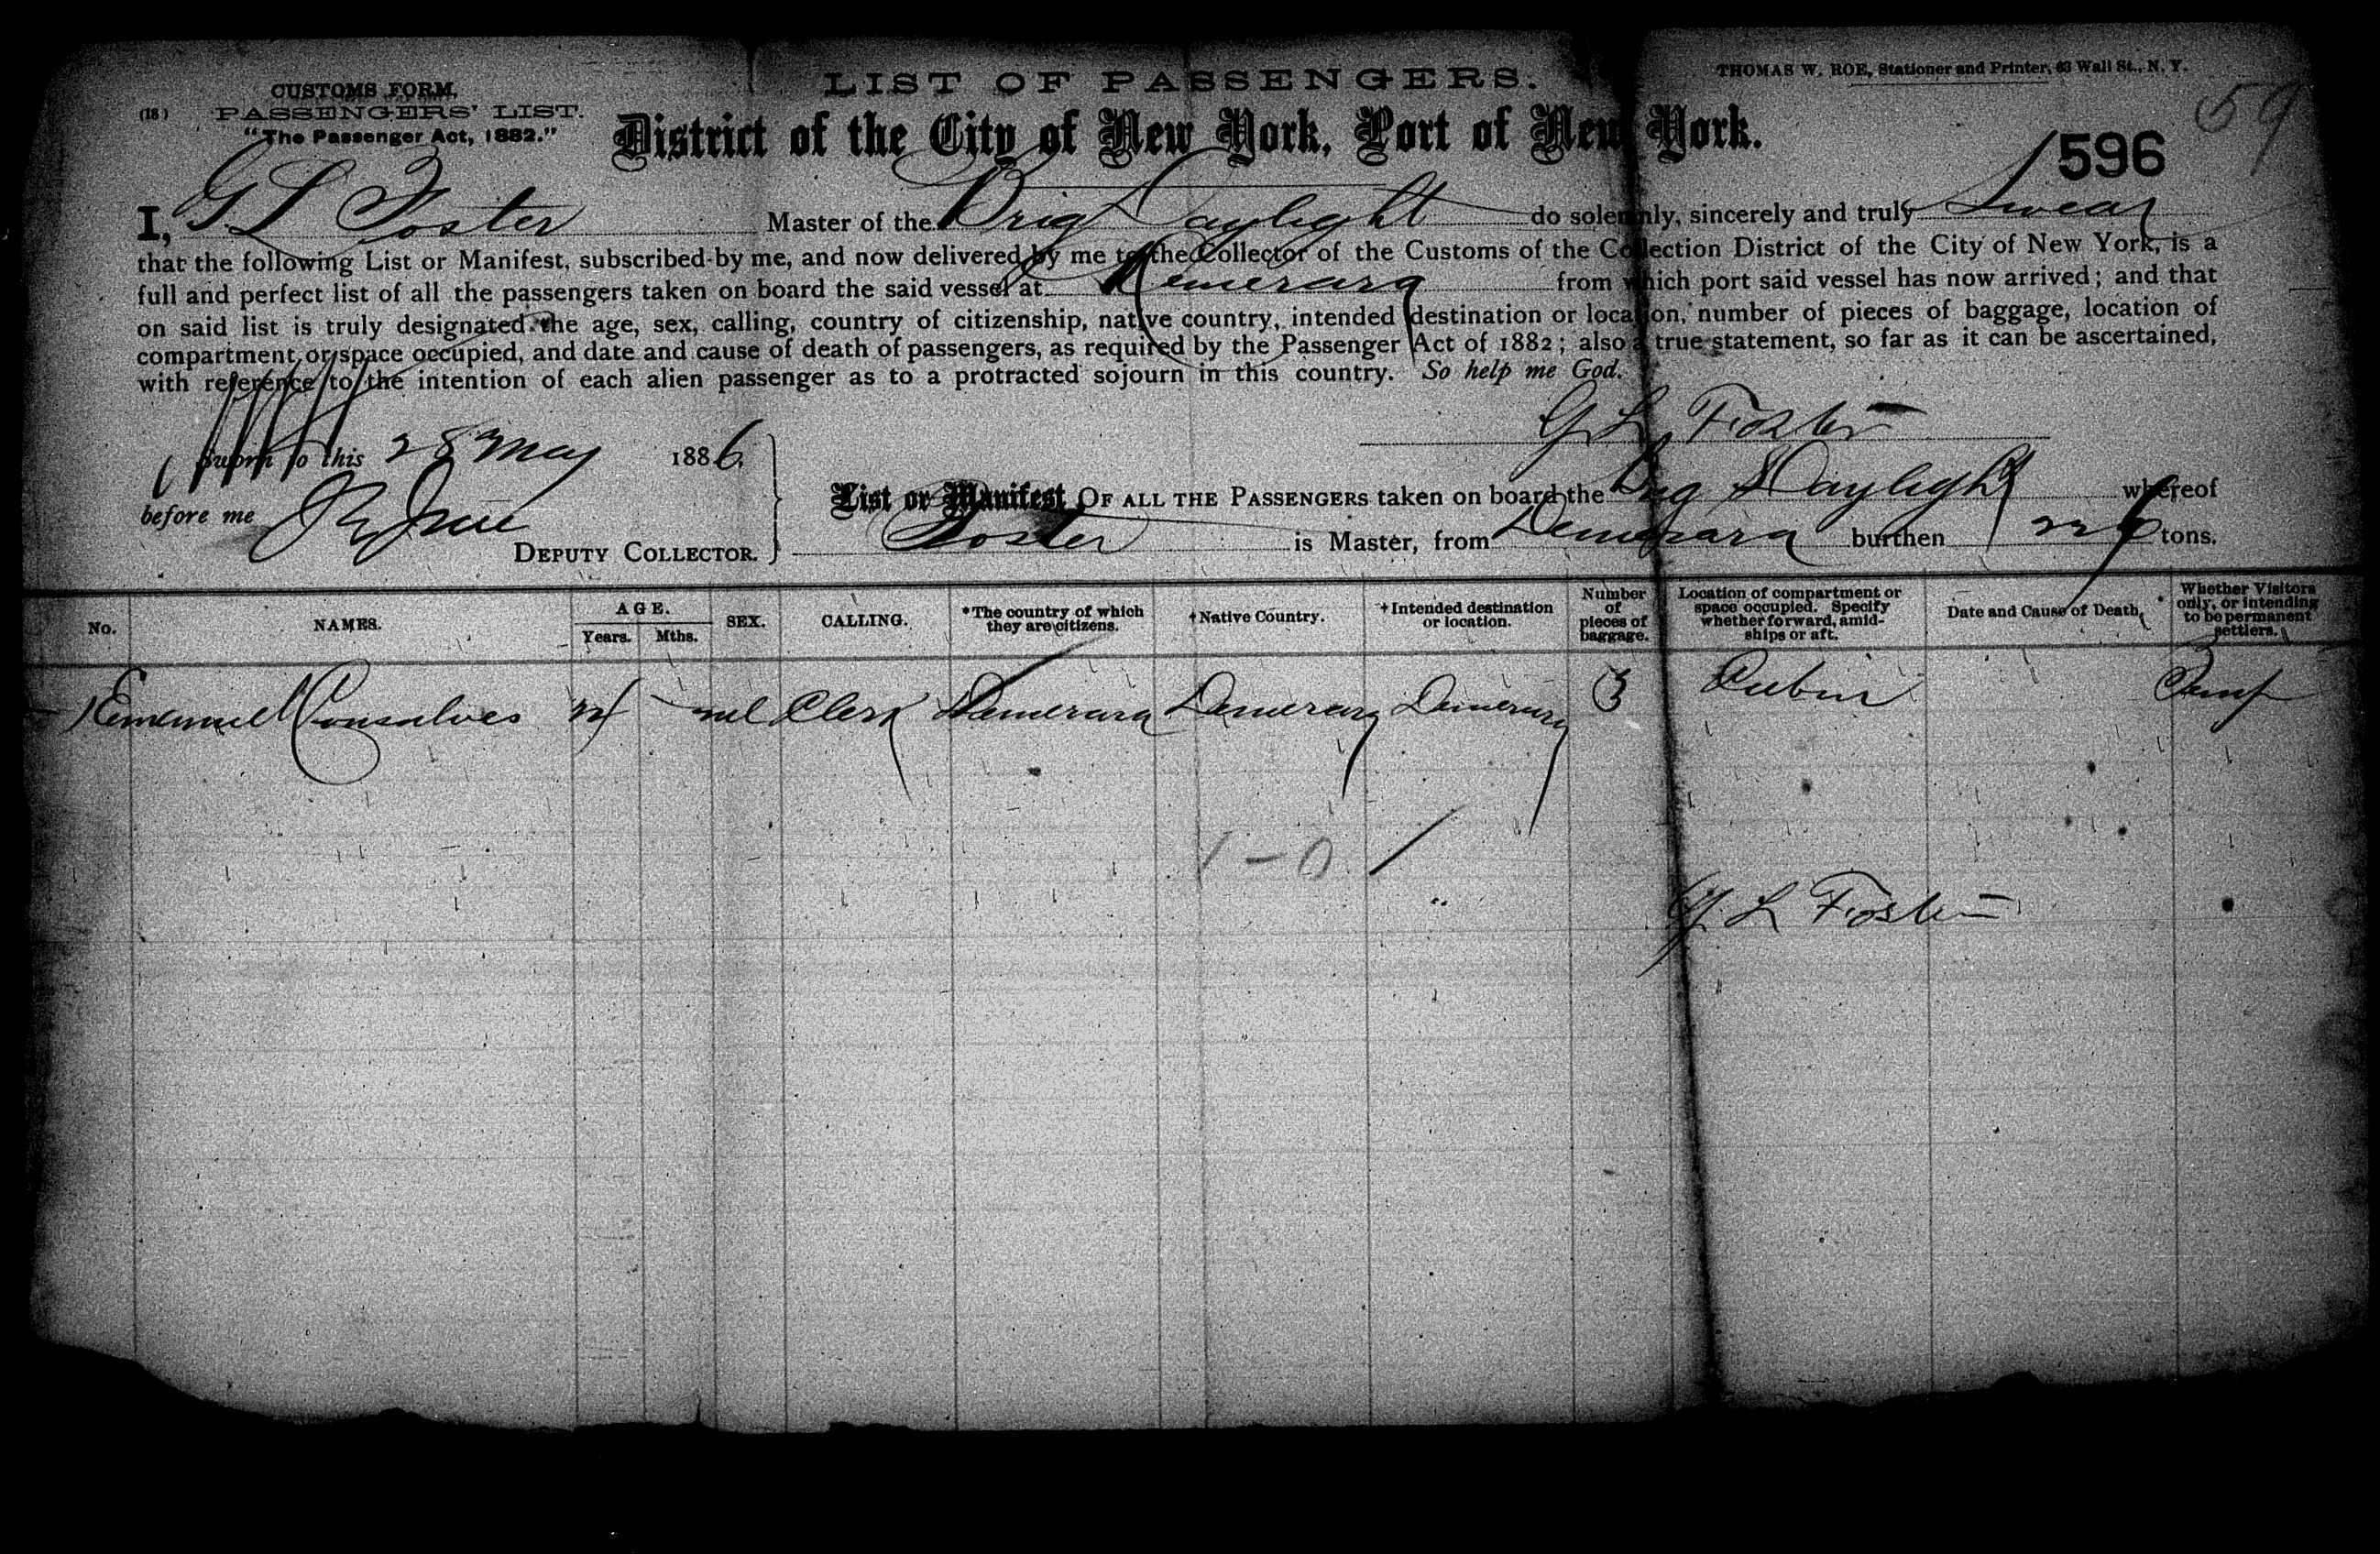 CUSTOMS FORM.
(18) PASSENGERS' LIST.
"The Passenger Act, 1882."
LIST OF PASSENGERS.
THOMAS W. ROE, Stationer and Printer, 63 Wall St., N. Y.
District of the City of New York, Port of New York.
59
596
I, G L Foster Master of the Brig Daylight do solemnly, sincerely and truly Swear
that the following List or Manifest, subscribed by me, and now delivered by me to the Collector of the Customs of the Collection District of the City of New York, is a
full and perfect list of all the passengers taken on board the said vessel at Demerara from which port said vessel has now arrived; and that
on said list is truly designated the age, sex, calling, country of citizenship, native country, intended destination or location, number of pieces of baggage, location of
compartment or space occupied, and date and cause of death of passengers, as required by the Passenger Act of 1882; also a true statement, so far as it can be ascertained,
with reference to the intention of each alien passenger as to a protracted sojourn in this country. So help me God.
G L Foster
Sworn to this 28 May 1886.
before me
DEPUTY COLLECTOR.
List or Manifest OF ALL THE PASSENGERS taken on board the Brig Daylight whereof
Foster is Master, from Demerara burthen tons.
No. NAMES. AGE. Years. Mths. SEX. CALLING. *The country of which they are citizens. †Native Country. †Intended destination or location. Number of pieces of baggage. Location of compartment or space occupied. Specify whether forward, amidships or aft. Date and Cause of Death. Whether Visitors only, or intending to be permanent settlers.
1 Emanuel Consalves Clerk Demerara Demerara Demerara 3 Cabin
1-0
G L Foster